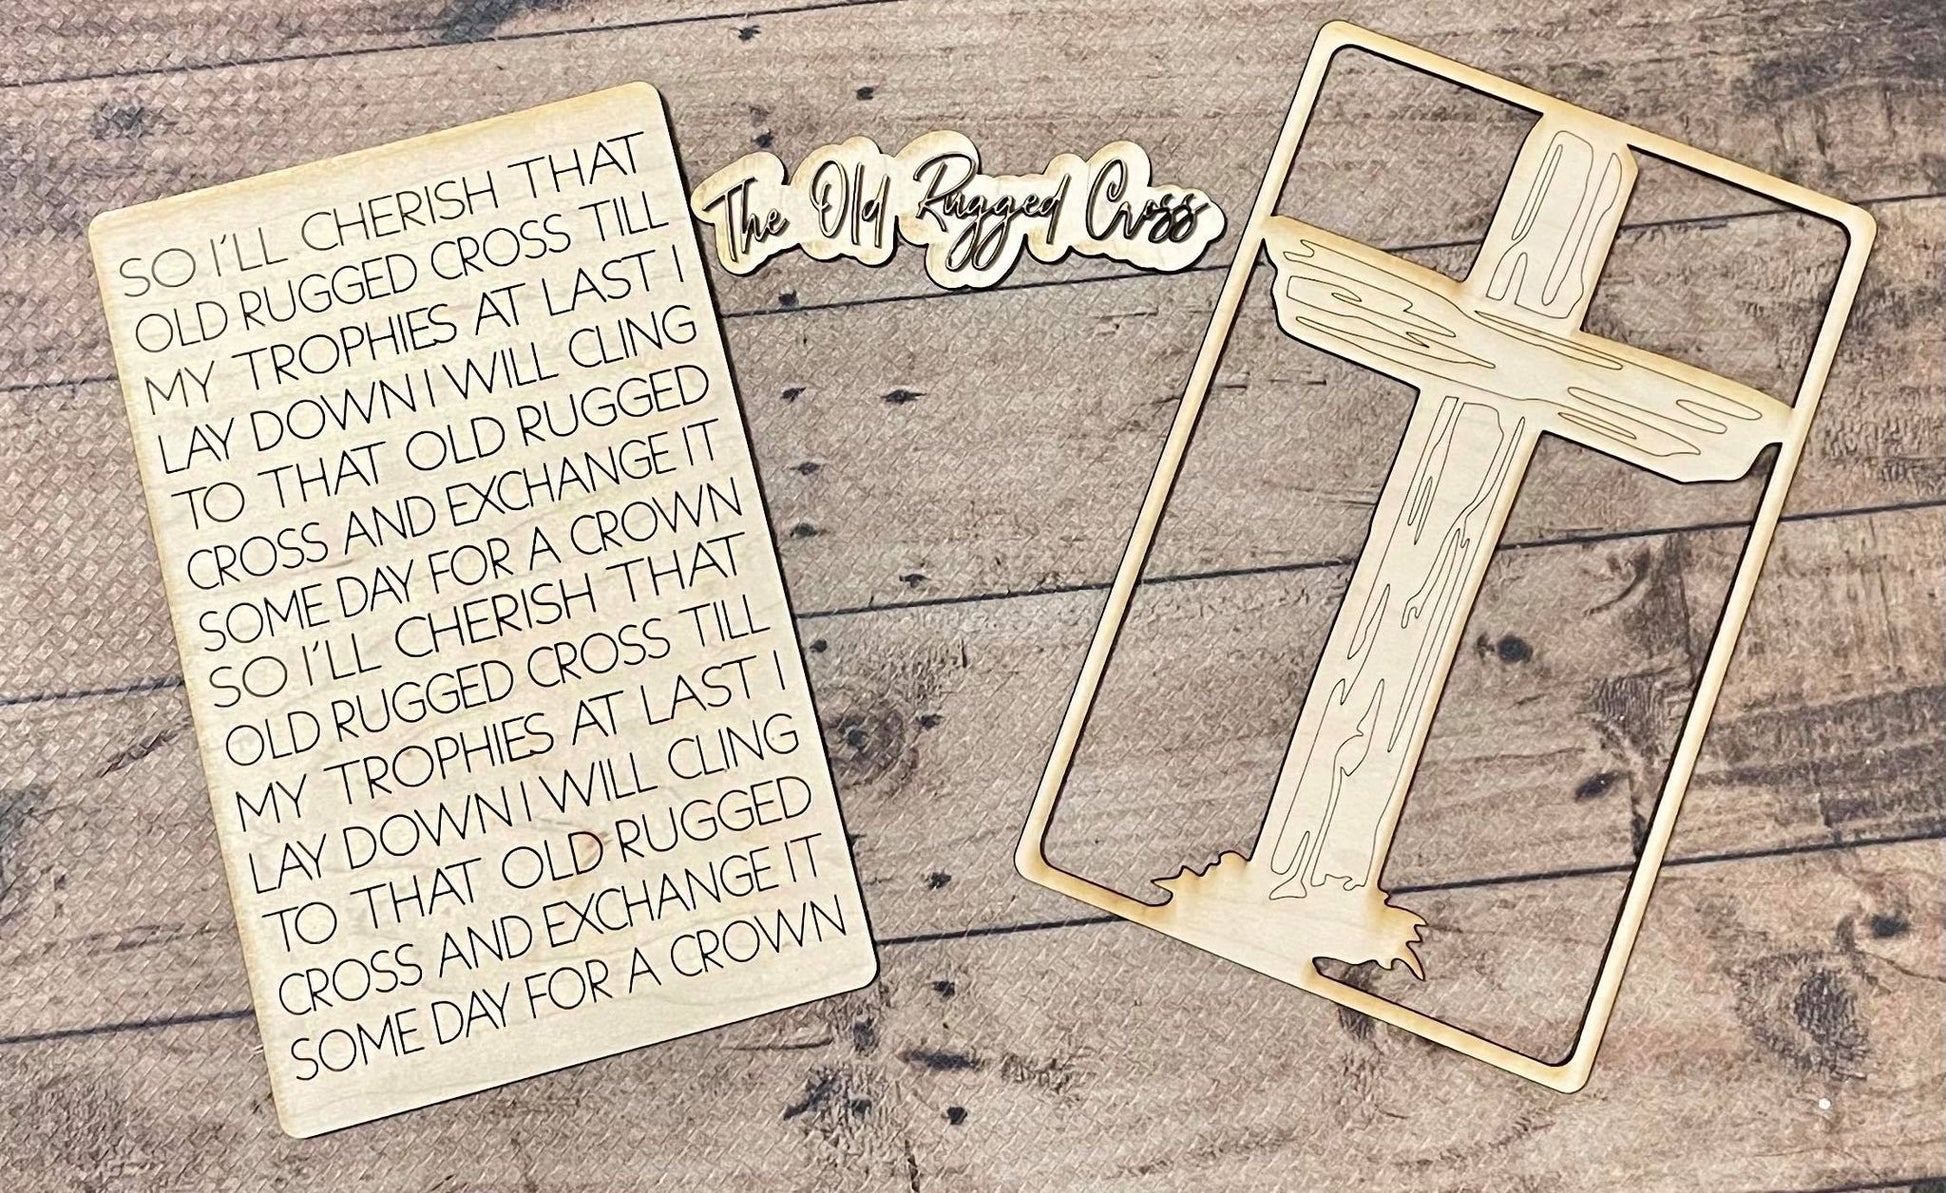 SO I'LL CHERISH THAT
OLD RUGGED CROSS TILL
MY TROPHIES AT LAST I
LAY DOWN I WILL CLING
TO THAT OLD RUGGED
CROSS AND EXCHANGE IT
SOME DAY FOR A CROWN
SO I'LL CHERISH THAT
OLD RUGGED CROSS TILL
MY TROPHIES AT LAST I
LAY DOWN I WILL CLING
TO THAT OLD RUGGED
CROSS AND EXCHANGE IT
SOME DAY FOR A CROWN
The Old Rugged Cross